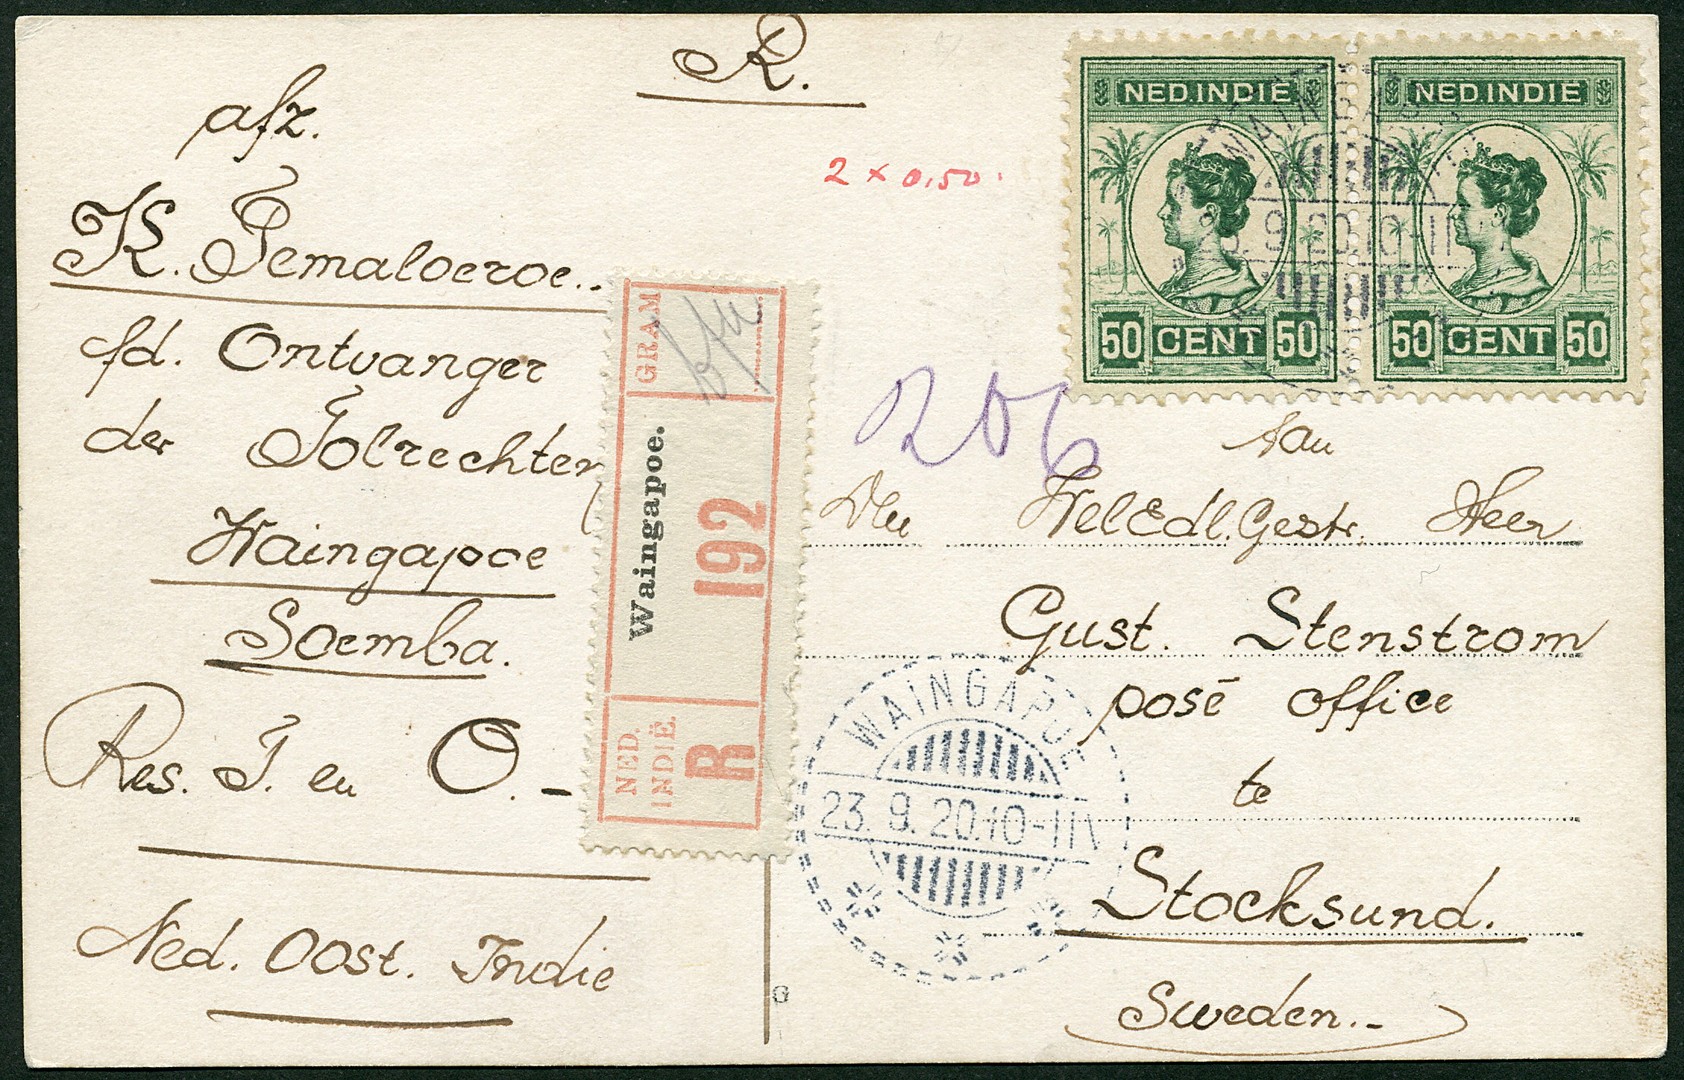 R.
afz.
K. Temaloeroe..
fd. Ontvanger
der Tolrechten
Waingapoe
Soemba.
Res. T. en O. -
Ned. Oost. Indie
2 x 0,50.
NED. INDIË
50 CENT 50
NED. INDIË
50 CENT 50
WAINGAPOE
23.9.20.10-11V
206
GRAM
Waingapoe.
192
NED.
INDIË.
R
Aan
Den WelEdl. Gestr. Heer
Gust. Stenstrom
posē office
te
Stocksund.
Sweden.-
WAINGAPOE
23.9.20.10-11V
G